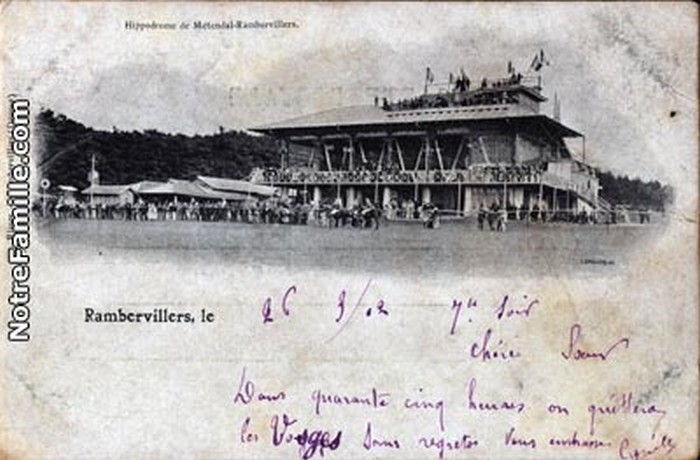 Hippodrome de Métendal-Rambervillers.
NotreFamille.com
Rambervillers, le 26 9/02 7h Soir
chéré Soeur
Dans quarante cinq heures on quittera
les Vosges Sans regrets Vous embrasse